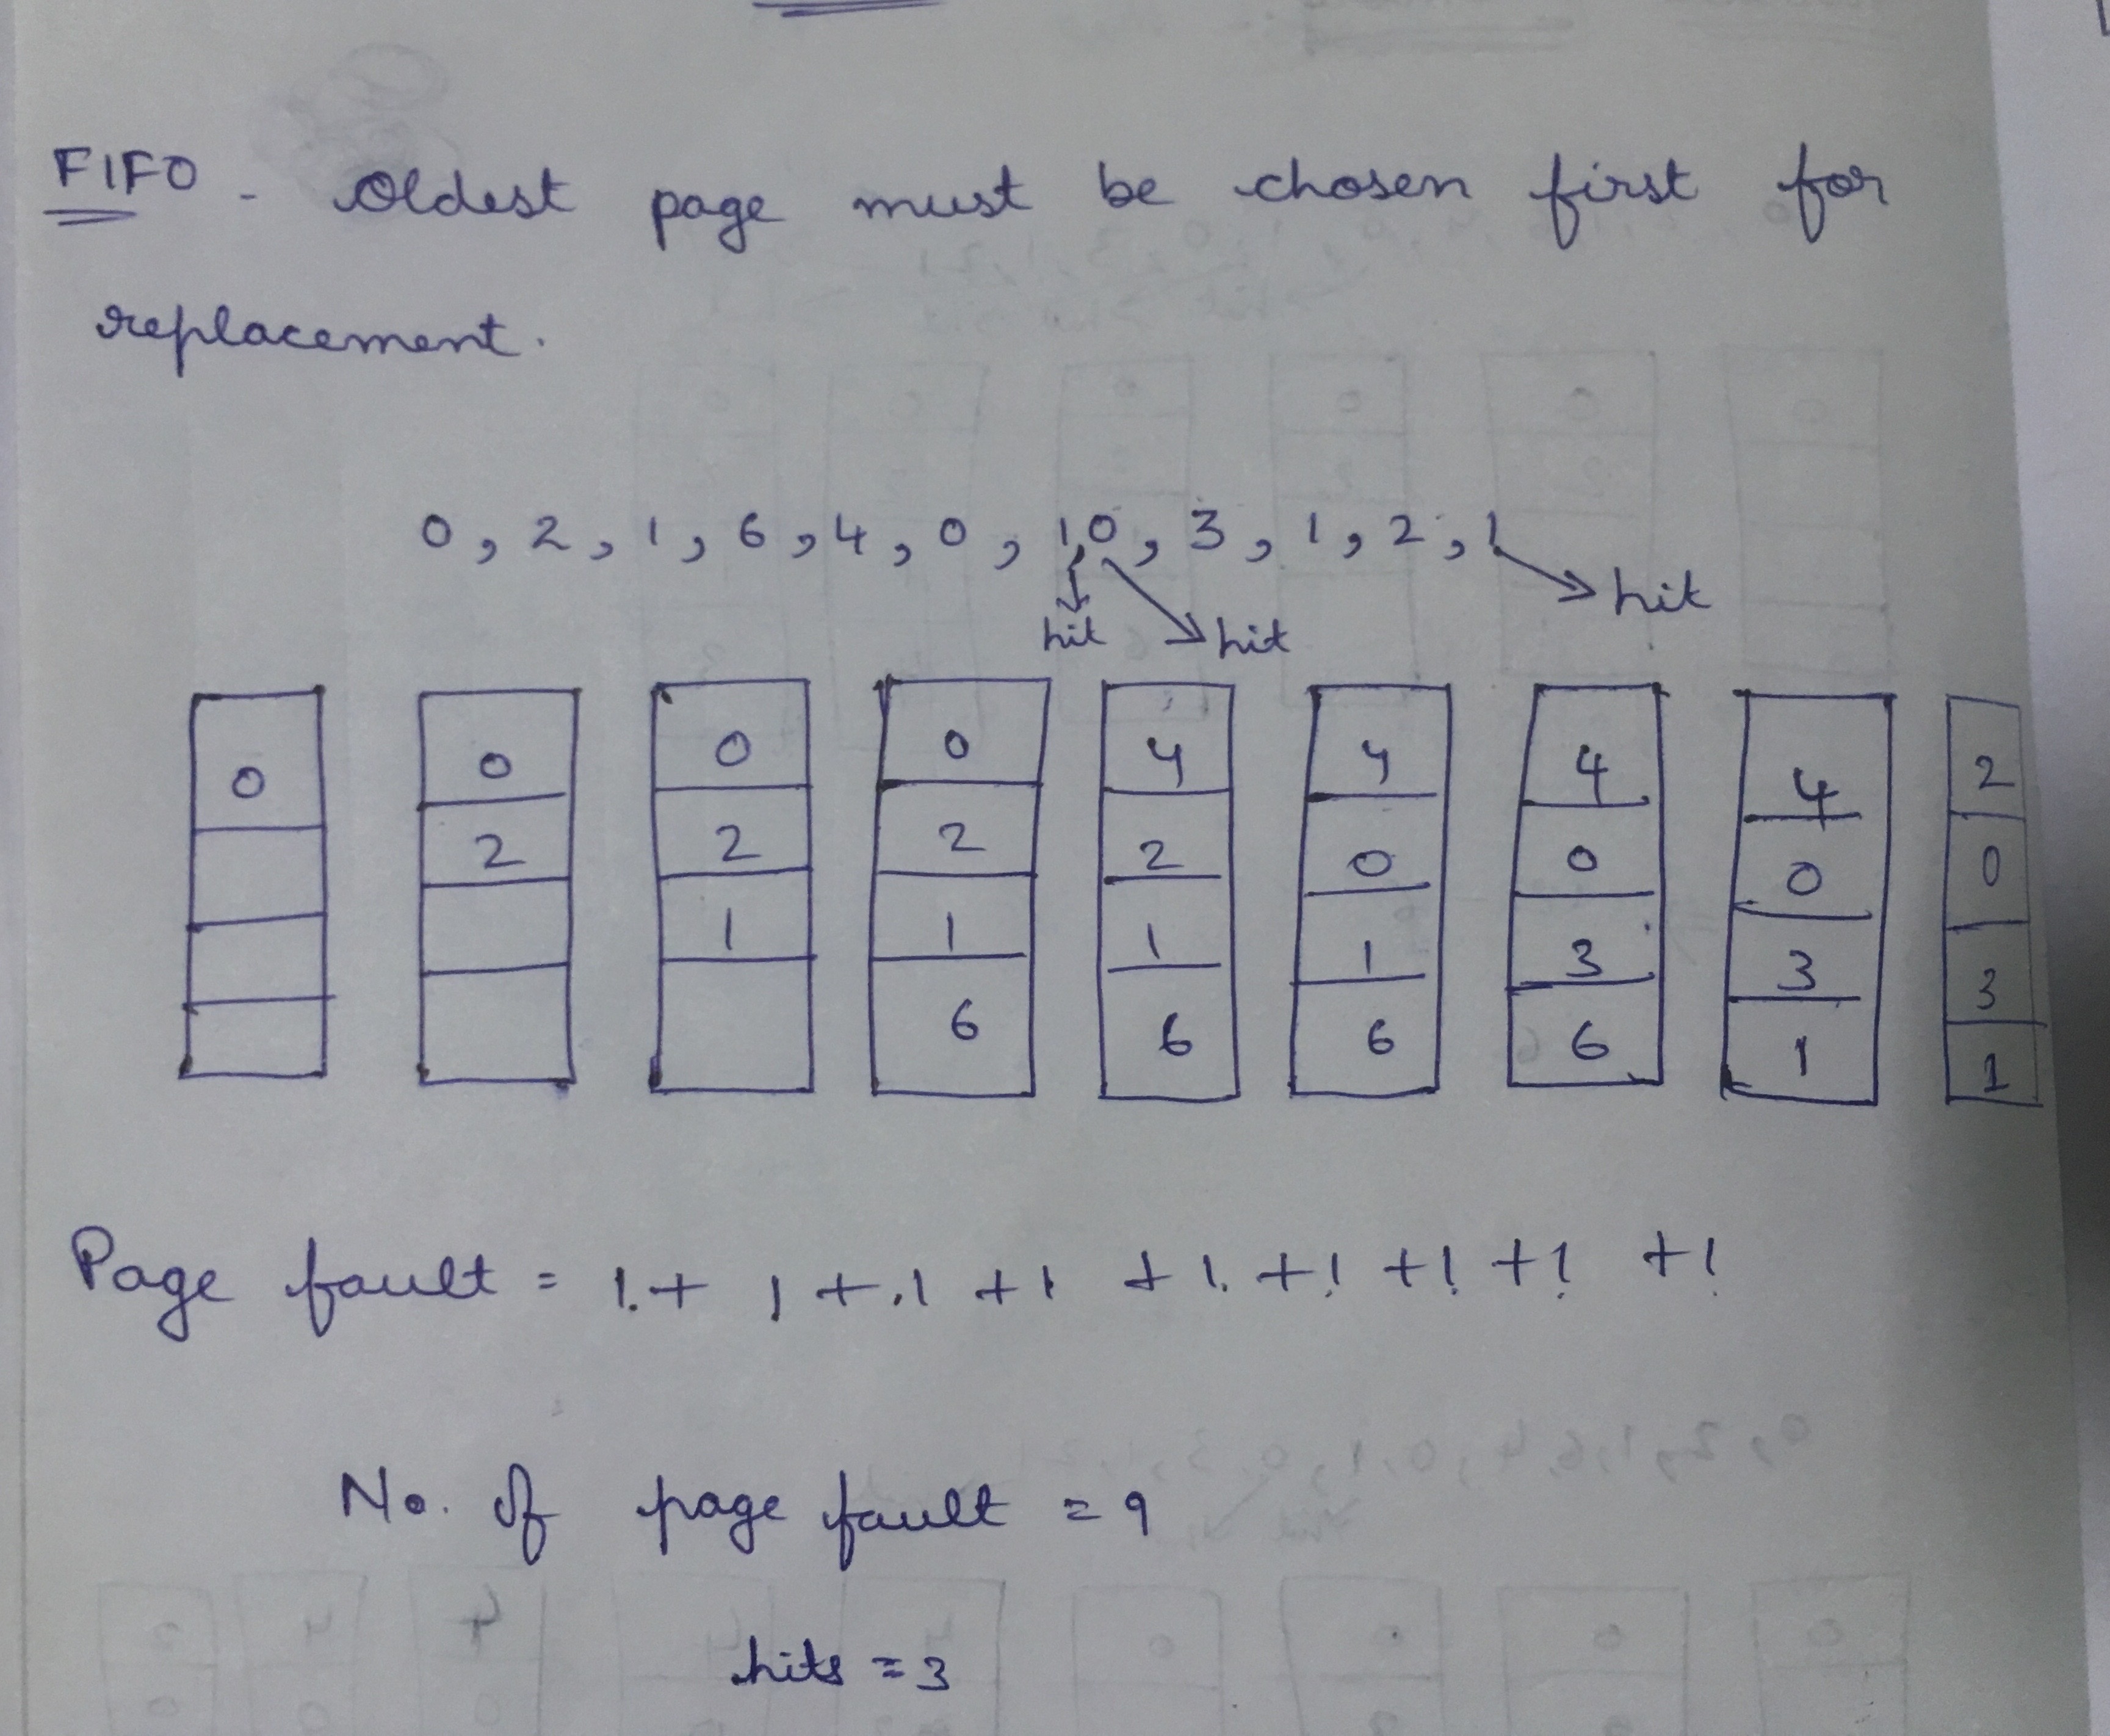 FIFO - Oldest page must be chosen first for
replacement.
0, 2, 1, 6, 4, 0, 1, 0, 3, 1, 2, 1
hit
hit hit
0 0 0 0 4 4 4 4 2
2 2 2 2 0 0 0 0
1 1 1 1 3 3 3
6 6 6 6 1 1
Page fault = 1 + 1 + 1 + 1 + 1 + 1 + 1 + 1 + 1
No. of page fault = 9
hits = 3